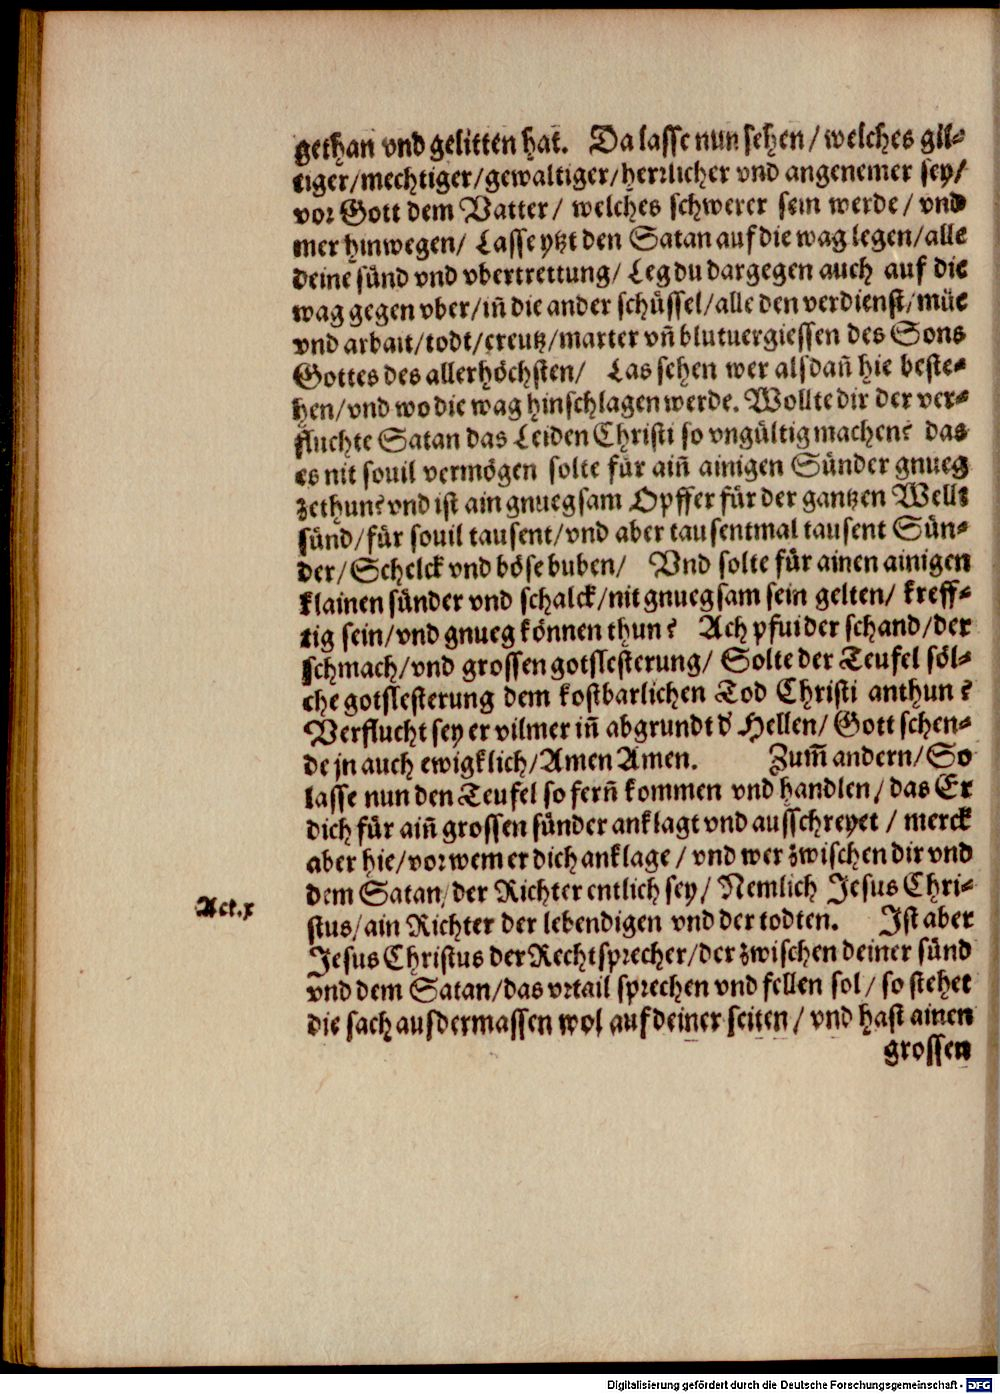 gethan vnd gelitten hat. Da lasse nun sehen / welches gil-
tiger / mechtiger / gewaltiger / herrlicher vnd angenemer sey /
vor Gott dem Vatter / welches schwerer sein werde / vnd
mer hinwegen / Lasse ytzt den Satan auf die wag legen / alle
deine sünd vnd vbertrettung / Leg du dargegen auch auf die
wag gegen vber / in̄ die ander schüssel / alle den verdienst / müe
vnd arbait / todt / creutz / marter vn̄ blutuergiessen des Sons
Gottes des allerhöchsten / Las sehen wer alsdan̄ hie beste-
hen / vnd wo die wag hinschlagen werde. Wollte dir der ver-
fluchte Satan das Leiden Christi so vngültig machen? das
es nit souil vermögen solte für ain̄ ainigen Sünder gnueg
zethun? vnd ist ain gnuegsam Opffer für der gantzen Welt
sünd / für souil tausent / vnd aber tausentmal tausent Sün-
der / Schelck vnd böse buben / Vnd solte für ainen ainigen
klainen sünder vnd schalck / nit gnuegsam sein gelten / kreff-
tig sein / vnd gnueg können thun? Ach pfui der schand / der
schmach / vnd grossen gotslesterung / Solte der Teufel söl-
che gotslesterung dem kostbarlichen Tod Christi anthun?
Verflucht sey er vilmer in̄ abgrundt d' Hellen / Gott schen-
de jn auch ewigklich / Amen Amen. Zum̄ andern / So
lasse nun den Teufel so fern̄ kommen vnd handlen / das Er
dich für ain̄ grossen sünder anklagt vnd ausschreyet / merck
aber hie / vor wem er dich anklage / vnd wer zwischen dir vnd
dem Satan / der Richter entlich sey / Nemlich Jesus Chri-
Act. x
stus / ain Richter der lebendigen vnd der todten. Ist aber
Jesus Christus der Rechtsprecher / der zwischen deiner sünd
vnd dem Satan / das vrtail sprechen vnd fellen sol / so stehet
die sach ausdermassen wol auf deiner seiten / vnd hast ainen
grossen
Digitalisierung gefördert durch die Deutsche Forschungsgemeinschaft - DFG